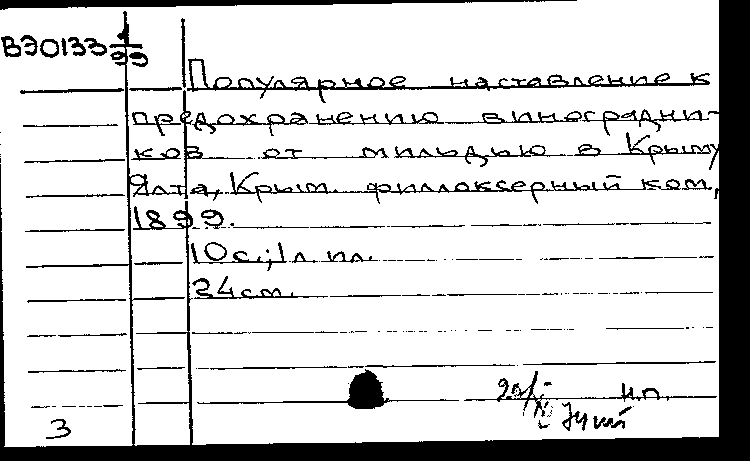 ВЭ0133 1/99
Популярное наставление к
предохранению виноградни-
ков от мильдью в Крыму
Ялта, Крым. филлоксерный ком.,
1899.
10с.; 1л. ил.
24см.
н.п.
3